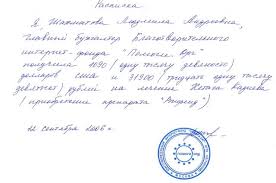 Расписка
Я, Шахматова Людмила Андреевна,
главный бухгалтер Благотворительного
интернет-фонда "Помоги. Орг"
получила 1090 (одну тысячу девяносто)
долларов сша и 31900 (тридцать одну тысячу
девятьсот) рублей на лечение
(приобретение препарата
22 сентября 2006 г.